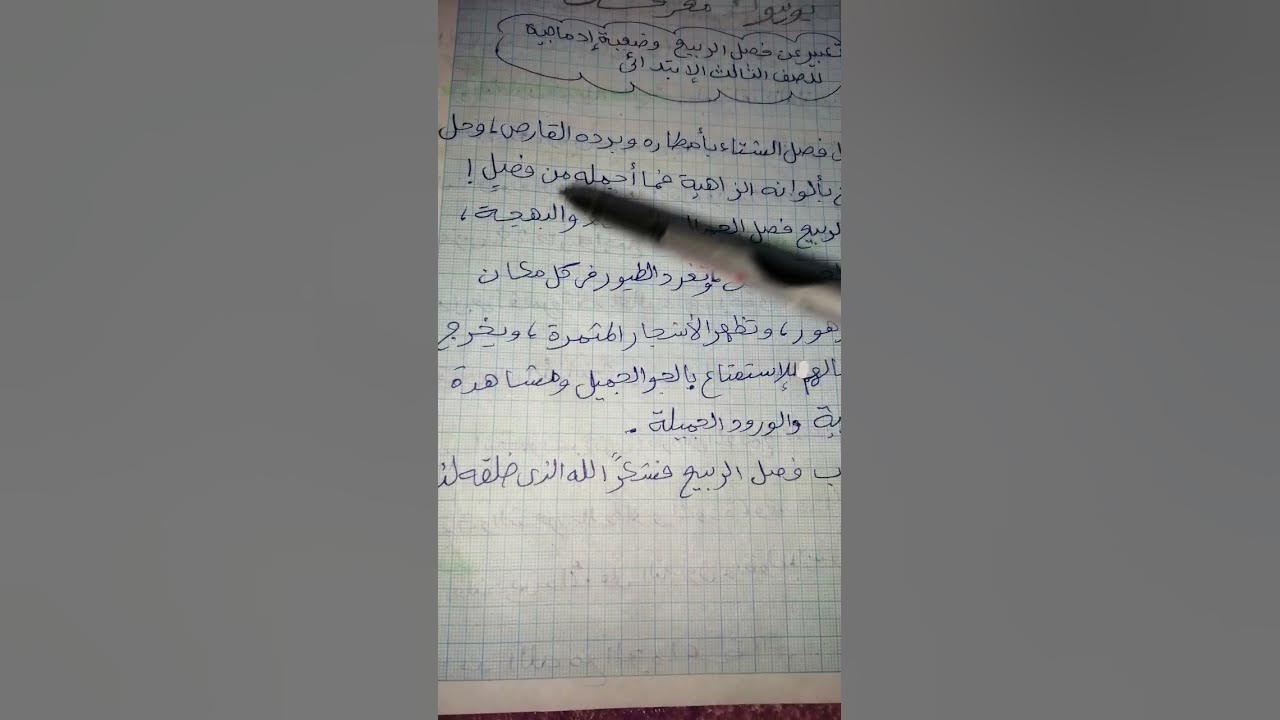 تعبير عن فصل الربيع وضعية إدماجية
للصف الثالث الإبتدائي
فصل الشتاء بأمطاره وبرده القارص، وحل
بألوانه الزاهية فما أجمله من فصلٍ!
الربيع فصل والبهجة،
وتغرد الطيور في كل مكان
وتظهر الأشجار المثمرة، ويخرج
للإستمتاع بالجو الجميل ومشاهدة
والورود الجميلة.
فصل الربيع فشكرًا الله الذى خلقه